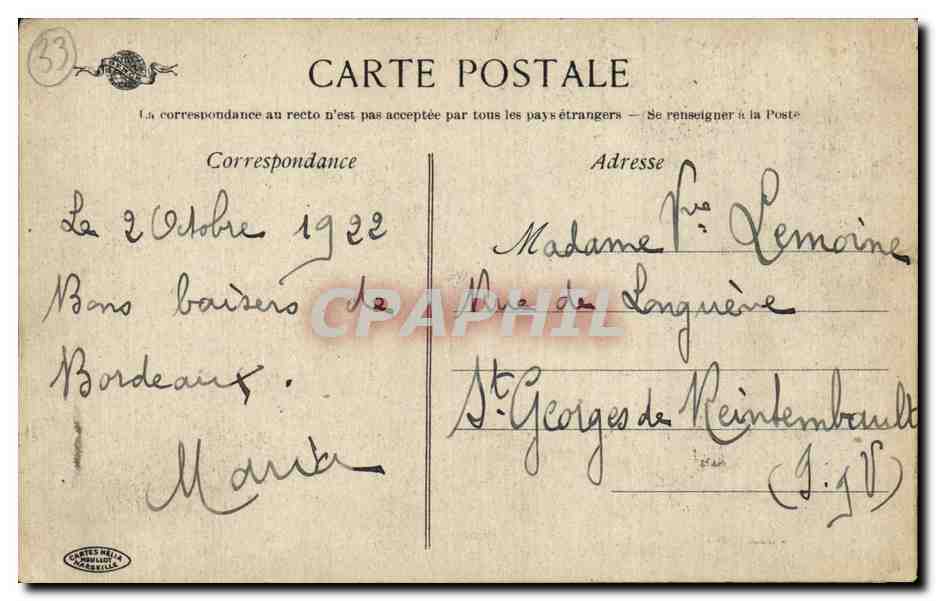 33
CARTE POSTALE
La correspondance au recto n'est pas acceptée par tous les pays étrangers — Se renseigner à la Poste
Correspondance
Le 2 Octobre 1922
Bons baisers de
Bordeaux.
Maria
Adresse
Madame Vve Lemoine
Rue de Longuève
St. Georges de Reintembault
(I. g V)
CPAPHIL
CARTES HELIA
MOULLOT
MARSEILLE